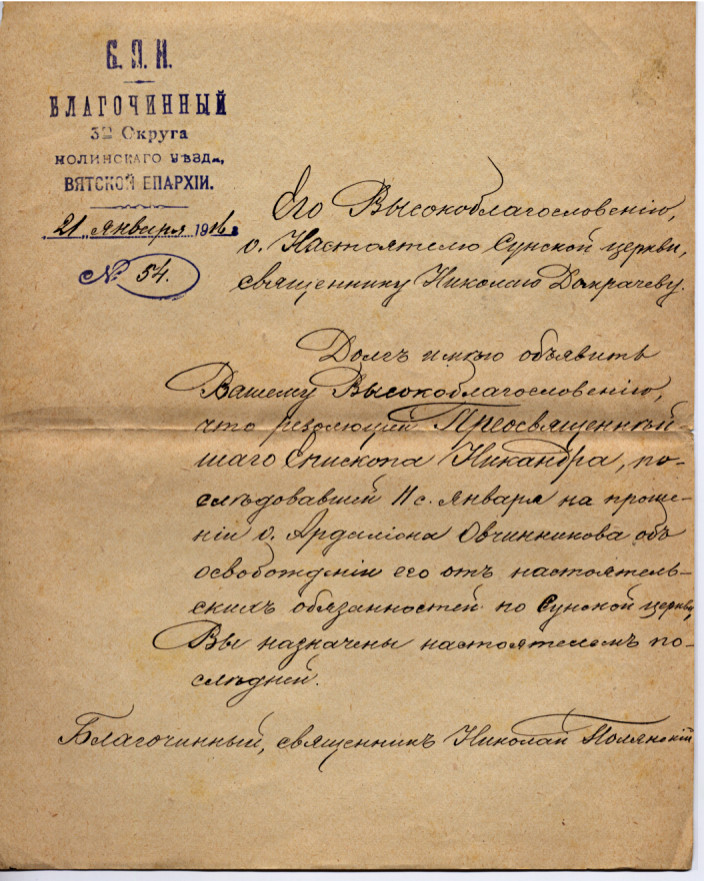 Б. П. И.
БЛАГОЧИННЫЙ
3го Округа
НОЛИНСКАГО УѢЗДА,
ВЯТСКОЙ ЕПАРХІИ.
21 января 1916 г.
№ 54.
Его Высокоблагословенію,
о. Настоятелю Сунской церкви,
священнику Николаю Домрачеву.
Долгъ имѣю объявить
Вашему Высокоблагословенію,
что резолюціей Преосвященнѣй-
шаго Епископа Никандра, по-
слѣдовавшей 11 с. января на проше-
ніи о. Ардаліона Овчинникова объ
освобожденіи его отъ настоятель-
скихъ обязанностей по Сунской церкви,
Вы назначены настоятелемъ по-
слѣдней.
Благочинный, священникъ Николай Полянскій